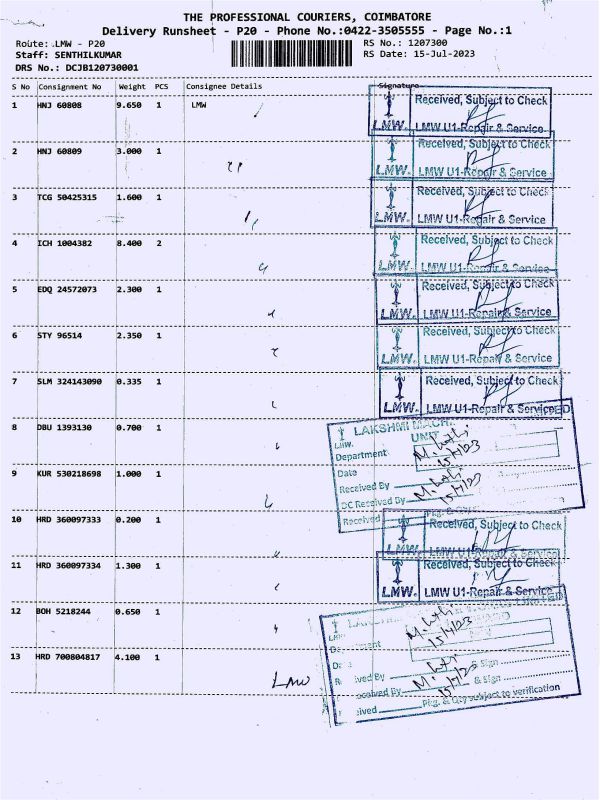 THE PROFESSIONAL COURIERS, COIMBATORE
Delivery Runsheet - P20 - Phone No.:0422-3505555 - Page No.:1
Route: LMW - P20 RS No.: 1207300
Staff: SENTHILKUMAR RS Date: 15-Jul-2023
DRS No.: DCJB120730001
S No Consignment No Weight PCS Consignee Details Signature
1 HNJ 60808 9.650 1 LMW
Received, Subject to Check
LMW. LMW U1-Repair & Service
2 HNJ 60809 3.000 1
Received, Subject to Check
LMW. LMW U1-Repair & Service
3 TCG 50425315 1.600 1
Received, Subject to Check
LMW. LMW U1-Repair & Service
4 ICH 1004382 8.400 2
Received, Subject to Check
LMW. LMW U1-Repair & Service
5 EDQ 24572073 2.300 1
Received, Subject to Check
LMW. LMW U1-Repair & Service
6 STY 96514 2.350 1
Received, Subject to Check
LMW. LMW U1-Repair & Service
7 SLM 324143090 0.335 1
Received, Subject to Check
LMW. LMW U1-Repair & Service
8 DBU 1393130 0.700 1
LAKSHMI MACH
LMW. UNIT
Department
Date 15/7/23
9 KUR 530218698 1.000 1
Received By
DC Received By 15/7/23
Received
10 HRD 360097333 0.200 1
Received, Subject to Check
LMW. LMW U1-Repair & Service
11 HRD 360097334 1.300 1
Received, Subject to Check
LMW. LMW U1-Repair & Service
12 BOH 5218244 0.650 1
15/7/23
13 HRD 700804817 4.100 1
LMW
& Sign
& Sign
15/7/23
Pkg. & Qty subject to verification